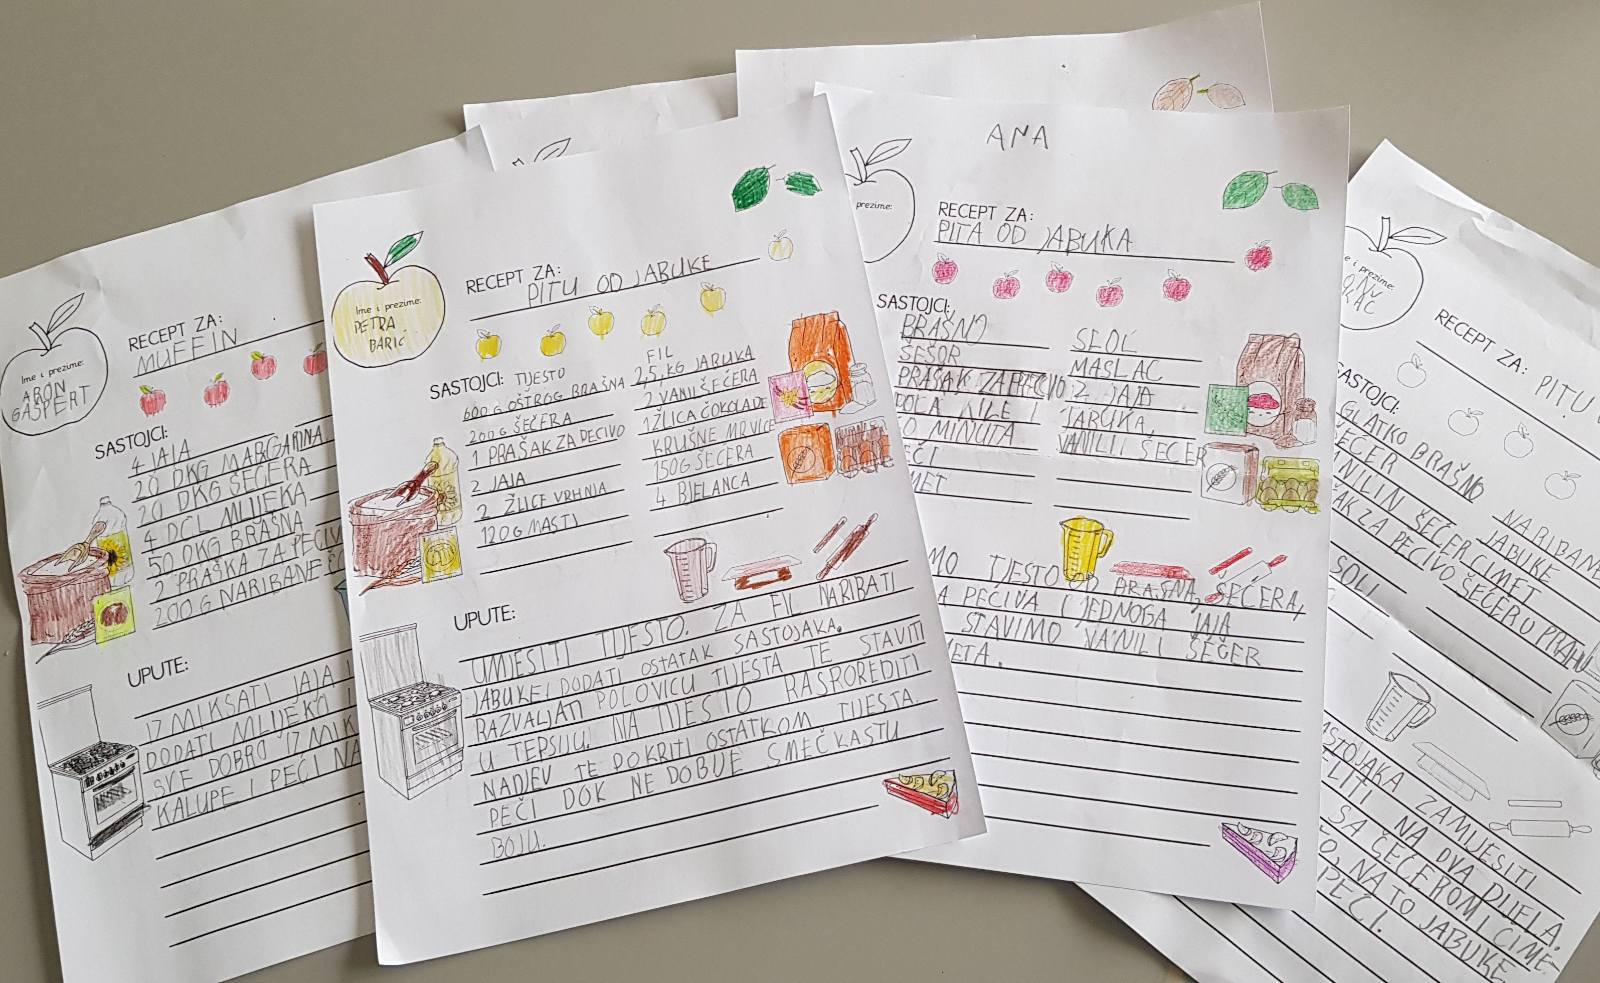 Ime i prezime:
ARON
GAŠPERT
RECEPT ZA:
MUFFIN
SASTOJCI:
4 JAJA
20 DKG MARGARINA
20 DKG ŠEĆERA
4 DCL MLIJEKA
50 DKG BRAŠNA
2 PRAŠKA ZA PECIV
200 G NARIBANE
UPUTE:
IZMIKSATI JAJA
DODATI MLIJEKA I
SVE DOBRO IZMIK
KALUPE I PEĆI NA
Ime i prezime:
PETRA
BARIĆ
RECEPT ZA:
PITU OD JABUKE
SASTOJCI: TIJESTO
600 G OŠTROG BRAŠNA
200 G ŠEĆERA
1 PRAŠAK ZA PECIVO
2 JAJA
2 ŽLICE VRHNJA
120 G MASTI
FIL
2,5, KG JABUKA
2 VANIL ŠEĆERA
1 ŽLICA ČOKOLADE
KRUŠNE MRVICE
150G ŠEĆERA
4 BJELANCA
UPUTE:
UMJESITI TIJESTO. ZA FIL NARIBATI
JABUKE I DODATI OSTATAK SASTOJAKA.
RAZVALJATI POLOVICU TIJESTA TE STAVITI
U TEPSIJU. NA TIJESTO RASPOREDITI
NADJEV TE POKRITI OSTATKOM TIJESTA.
PEČI DOK NE DOBIJE SMEČKASTU
BOJU.
ANA
prezime:
RECEPT ZA:
PITA OD JABUKA
SASTOJCI:
BRAŠNO
ŠEŠOR
PRAŠAK ZA PECIVO
POLA KILE I
0 MINUTA
EĆI
MET
SEOL
MASLAC
2 JAJA
JABUKA,
VANILLI ŠEĆER
MO TJESTO OD BRAŠNA, ŠEĆERA,
A PEĆIVA I JEDNOGA JAJA
STAVIMO VANILI ŠEĆER
ETA.
e i prezime:
RECEPT ZA: PITU
SASTOJCI:
GLATKO BRAŠNO
EĆER
ANILIN ŠEĆER CIMET
ŠAK ZA PECIVO ŠEĆER U PRAHU
SOLI
NARIBANE
JABUKE
ASTOJAKA ZAMIJESITI
ELITI NA DVA DIJELA.
SA ČEĆEROM I CIME-
O, NA TO JABUKE
PEĆI.